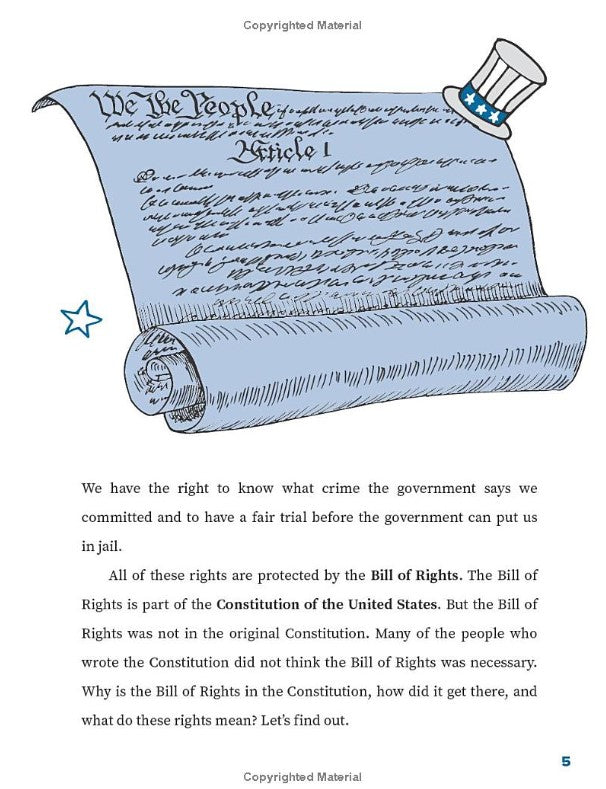 Copyrighted Material
We The People
Article 1
We have the right to know what crime the government says we
committed and to have a fair trial before the government can put us
in jail.
All of these rights are protected by the Bill of Rights. The Bill of
Rights is part of the Constitution of the United States. But the Bill of
Rights was not in the original Constitution. Many of the people who
wrote the Constitution did not think the Bill of Rights was necessary.
Why is the Bill of Rights in the Constitution, how did it get there, and
what do these rights mean? Let’s find out.
5
Copyrighted Material